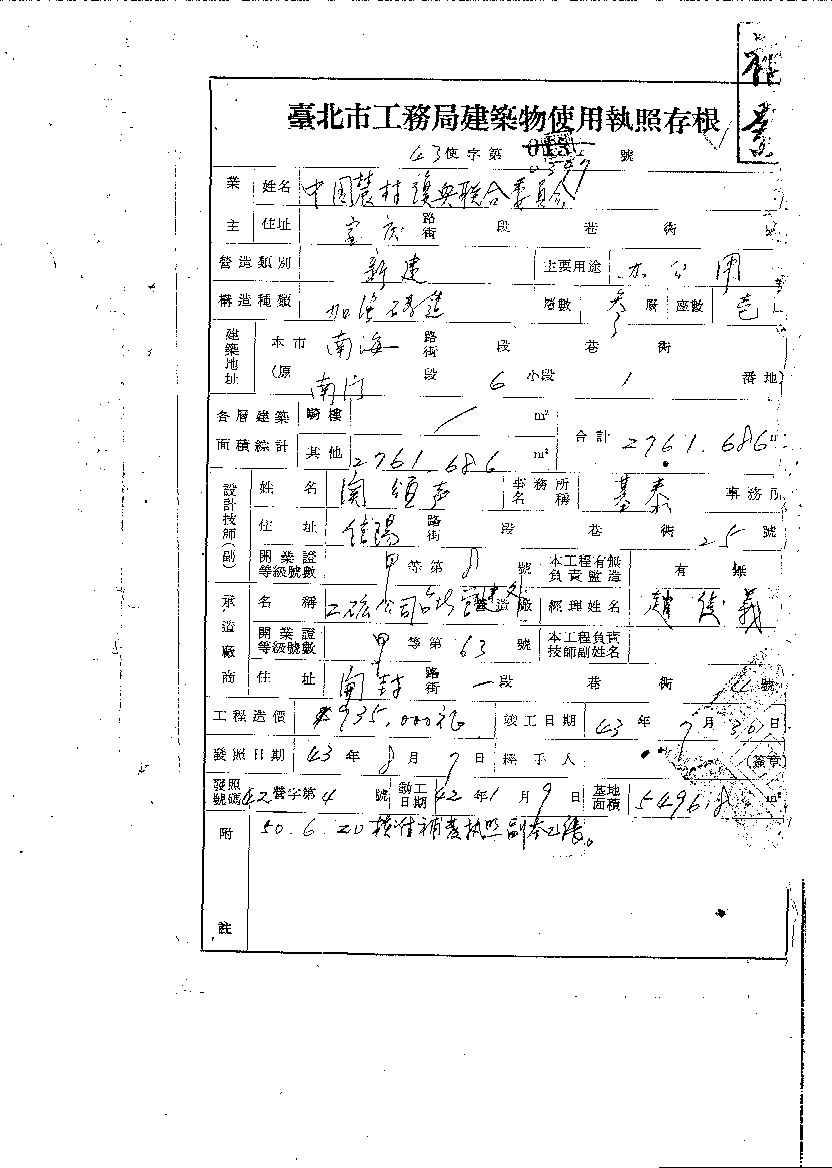 臺北市工務局建築物使用執照存根
43使字第0597號
業主 姓名 中国農村復興联合委員会
住址 宝慶 路街 段 巷 街 號
營造類別 新建 主要用途 办公用
構造種類 加強磚造 層數 参 層 座數 壱
建築地址 本市 南海 路街 段 巷 街
(原 南門 段 6 小段 1 番地)
各層建築面積綜計 騎樓 / m² 合計 2761.686
其他 2761.686 m²
設計技師(副) 姓名 関頌声 事務所名稱 基泰 事務所
住址 信陽 路街 段 巷 街 25 號
開業證等級號數 甲 等第 8 號 本工程有無負責監造 有 無
承造廠商 名稱 工矿公司 營造廠 經理姓名 趙俊義
開業證等級號數 甲 等第 63 號 本工程負責技師副姓名
住址 開封 路街 一段 巷 街 號
工程造價 935,000元 竣工日期 43年7月30日
發照日期 43年8月7日 經手人 (簽章)
發照號碼 42營字第4號 動工日期 42年1月9日 基地面積 5496.8 m²
附註 50.6.20核准補發执照副本乙張。